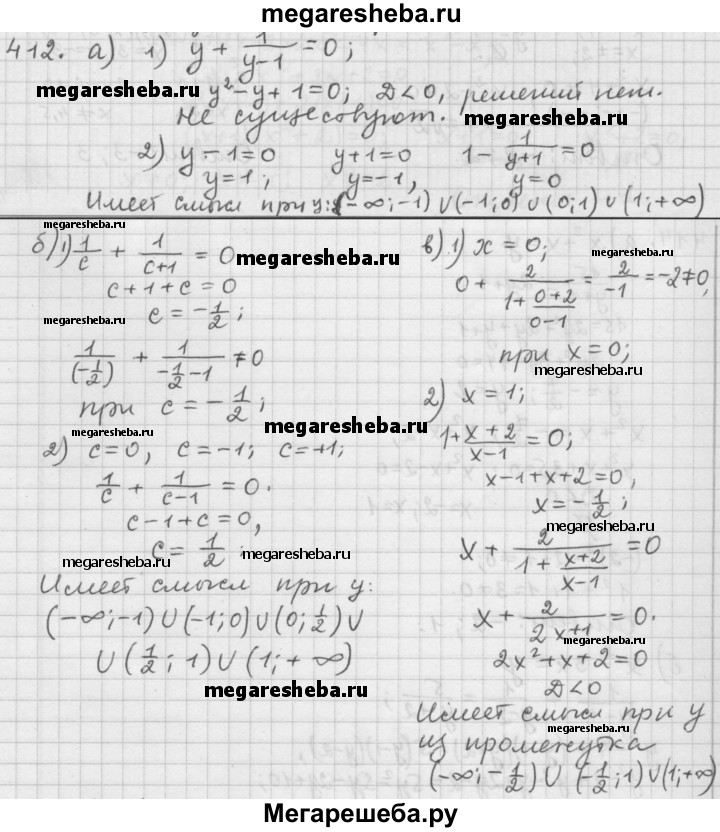 megaresheba.ru
412. а) 1) y + 1/(y-1) = 0;
megaresheba.ru y² - y + 1 = 0; D < 0, решений нет.
Не сущесовуют. megaresheba.ru
2) y - 1 = 0 y + 1 = 0 1 - 1/(y+1) = 0
y = 1; y = -1, y = 0
Имеет смысл при y: (-∞; -1) ∪ (-1; 0) ∪ (0; 1) ∪ (1; +∞)
megaresheba.ru
б) 1) 1/c + 1/(c+1) = 0
c + 1 + c = 0
megaresheba.ru c = -1/2;
1/(-1/2) + 1/(-1/2 - 1) ≠ 0
при c = -1/2;
megaresheba.ru
2) c = 0, c = -1; c = +1;
1/c + 1/(c-1) = 0.
c - 1 + c = 0,
c = 1/2. megaresheba.ru
megaresheba.ru
Имеет смысл при y:
(-∞; -1) ∪ (-1; 0) ∪ (0; 1/2) ∪
∪ (1/2; 1) ∪ (1; +∞)
megaresheba.ru
в) 1) x = 0; megaresheba.ru
0 + 2/(1 + (0+2)/(0-1)) = 2/(-1) = -2 ≠ 0,
megaresheba.ru
при x = 0;
2) x = 1;
megaresheba.ru
1 + (x+2)/(x-1) = 0;
x - 1 + x + 2 = 0,
x = -1/2;
megaresheba.ru
x + 2/(1 + (x+2)/(x-1)) = 0
megaresheba.ru
x + 2/(2x+1) = 0.
megaresheba.ru
2x² + x + 2 = 0
D < 0
Имеет смысл при y
megaresheba.ru
из промежутка
(-∞; -1/2) ∪ (-1/2; 1) ∪ (1; +∞)
Мегарешеба.ру